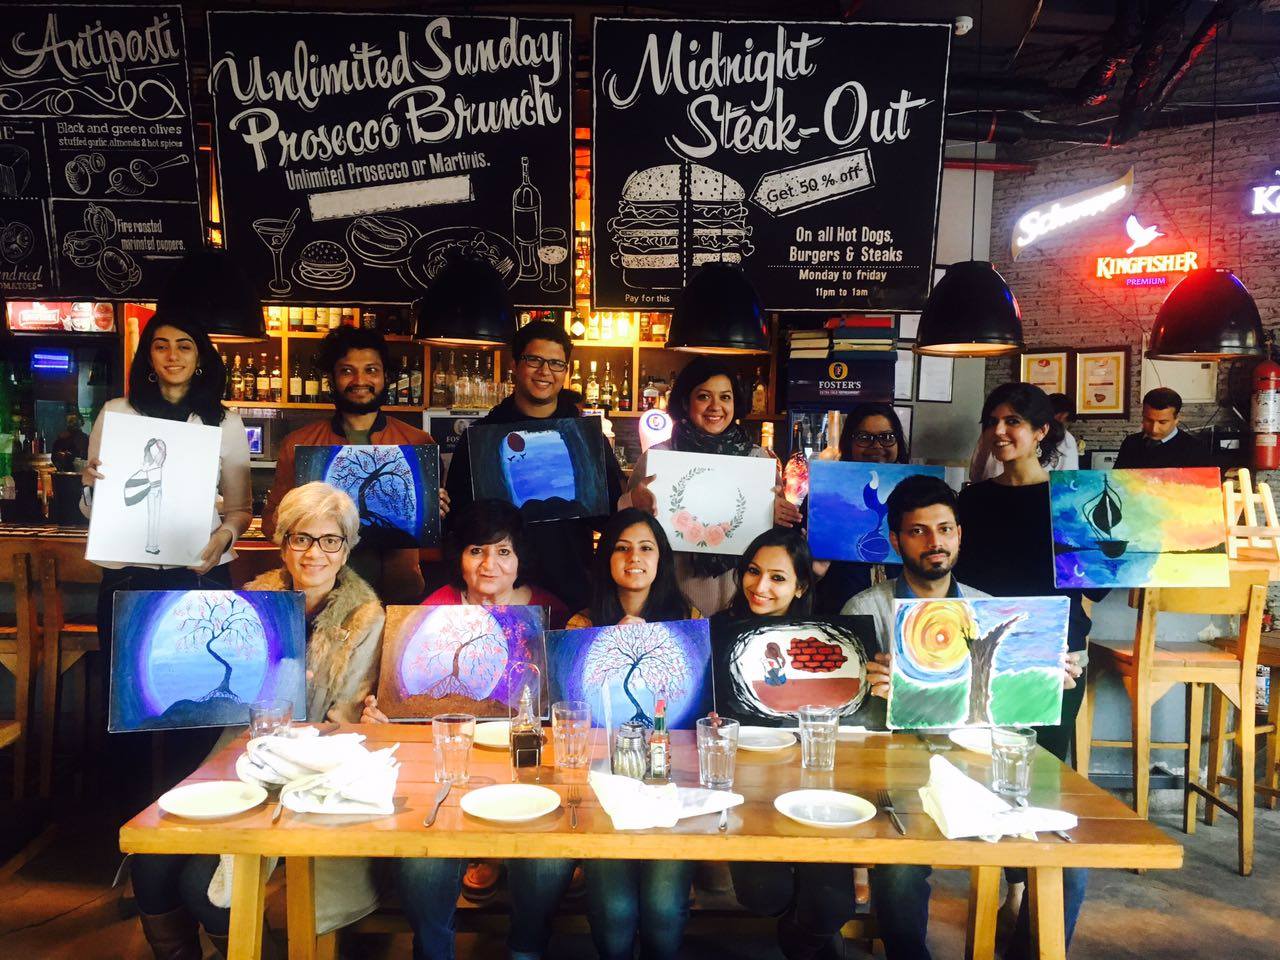 Antipasti
Black and green olives
stuffed garlic, almonds & hot spices
Fire roasted
marinated peppers.
Unlimited Sunday
Prosecco Brunch
Unlimited Prosecco or Martinis.
Midnight
Steak-Out
Get 50 % off
On all Hot Dogs,
Burgers & Steaks
Monday to friday
11pm to 1am
Pay for this
Schweppes
KINGFISHER
PREMIUM
FOSTER'S